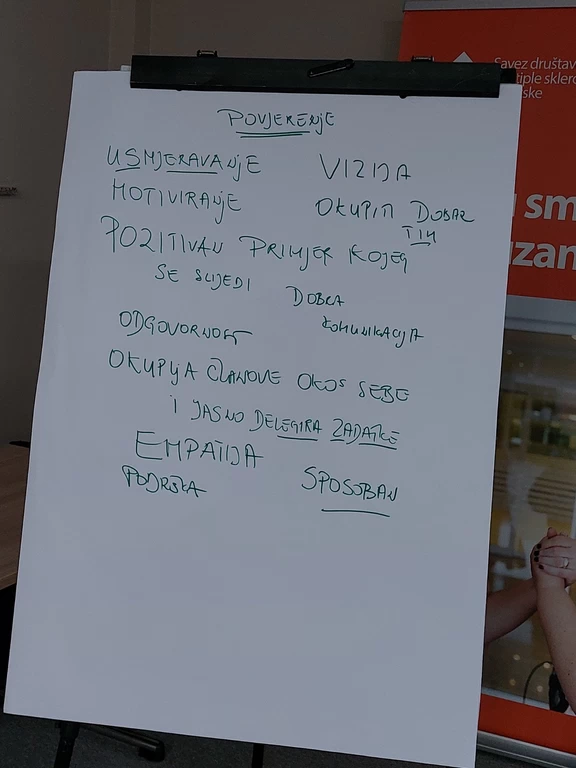 POVJERENJE
USMJERAVANJE
VIZIJA
MOTIVIRANJE
OKUPITI DOBAR
TIM
POZITIVAN PRIMJER KOJEG
SE SLIJEDI
DOBRA
KOMUNIKACIJA
ODGOVORNOST
OKUPLJA ČLANOVE OKO SEBE
I JASNO DELEGIRA ZADATKE
EMPATIJA
PODRŠKA
SPOSOBAN
Savez društav
tiple sklero
ske
u sm
zzan